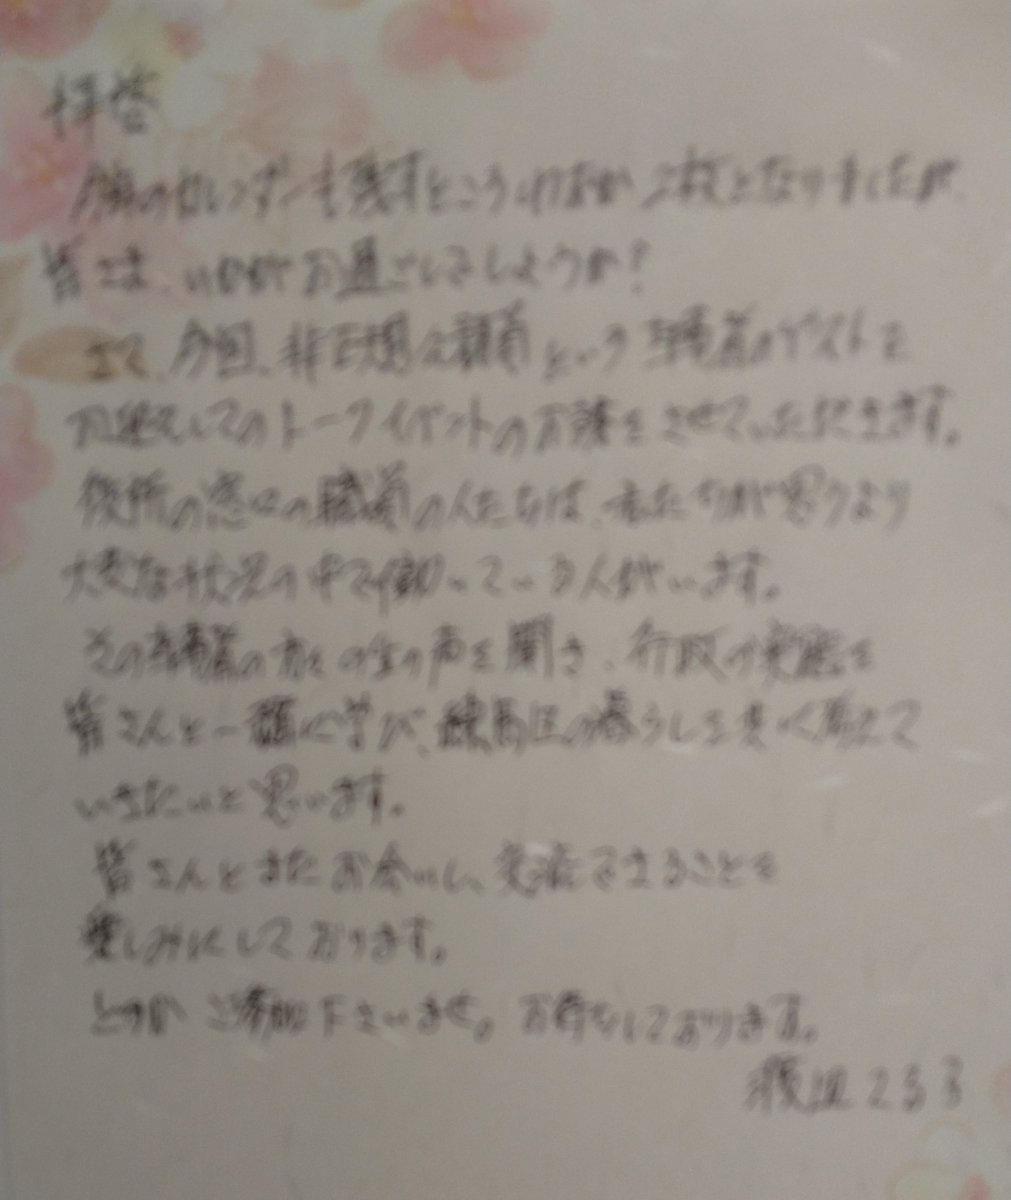 拝啓
カレンダーも残すところわずか2枚となりましたが、
皆さま、いかがお過ごしでしょうか?
さて、今回、非正規公務員という当事者のゲストを
お迎えしてのトークイベントのお誘いをさせていただきます。
役所の窓口の職員の人たちは、私たちが思うより
大変な状況の中で働いている人がいます。
その当事者の方々の生の声を聞き、行政の実態を
皆さんと一緒に学び、練馬区の暮らしを良く考えて
いきたいと思います。
皆さんとまたお会いし、交流できることを
楽しみにしております。
どうかご参加下さいませ。お待ちしております。